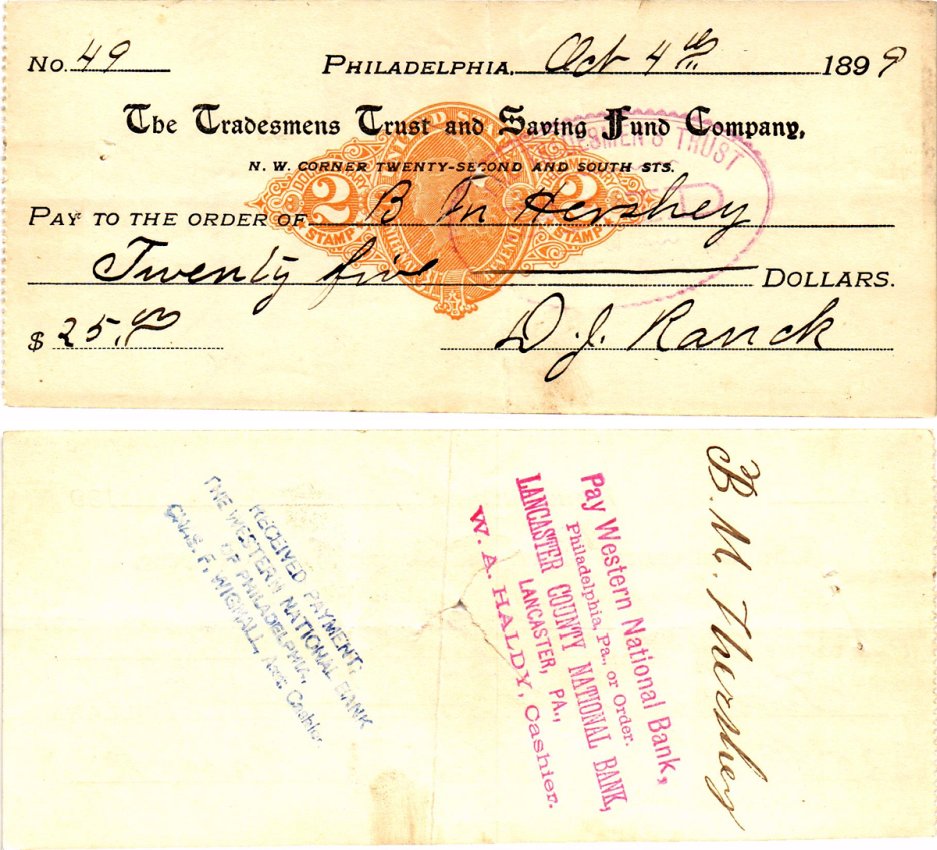 No. 49 PHILADELPHIA, Oct 4th 1899
The Tradesmens Trust and Saving Fund Company,
N. W. CORNER TWENTY-SECOND AND SOUTH STS.
2 UNITED STATES 2
STAMP STAMP
TRADESMEN'S TRUST
PAY TO THE ORDER OF B M Hershey
Twenty five DOLLARS.
$ 25.00 D. J. Ranck
RECEIVED PAYMENT,
THE WESTERN NATIONAL BANK
OF PHILADELPHIA,
CHAS. F. Cashier
Pay Western National Bank,
Philadelphia, Pa., or Order.
LANCASTER COUNTY NATIONAL BANK,
LANCASTER, PA.,
W. A. HALDY, Cashier.
B. M. Hershey